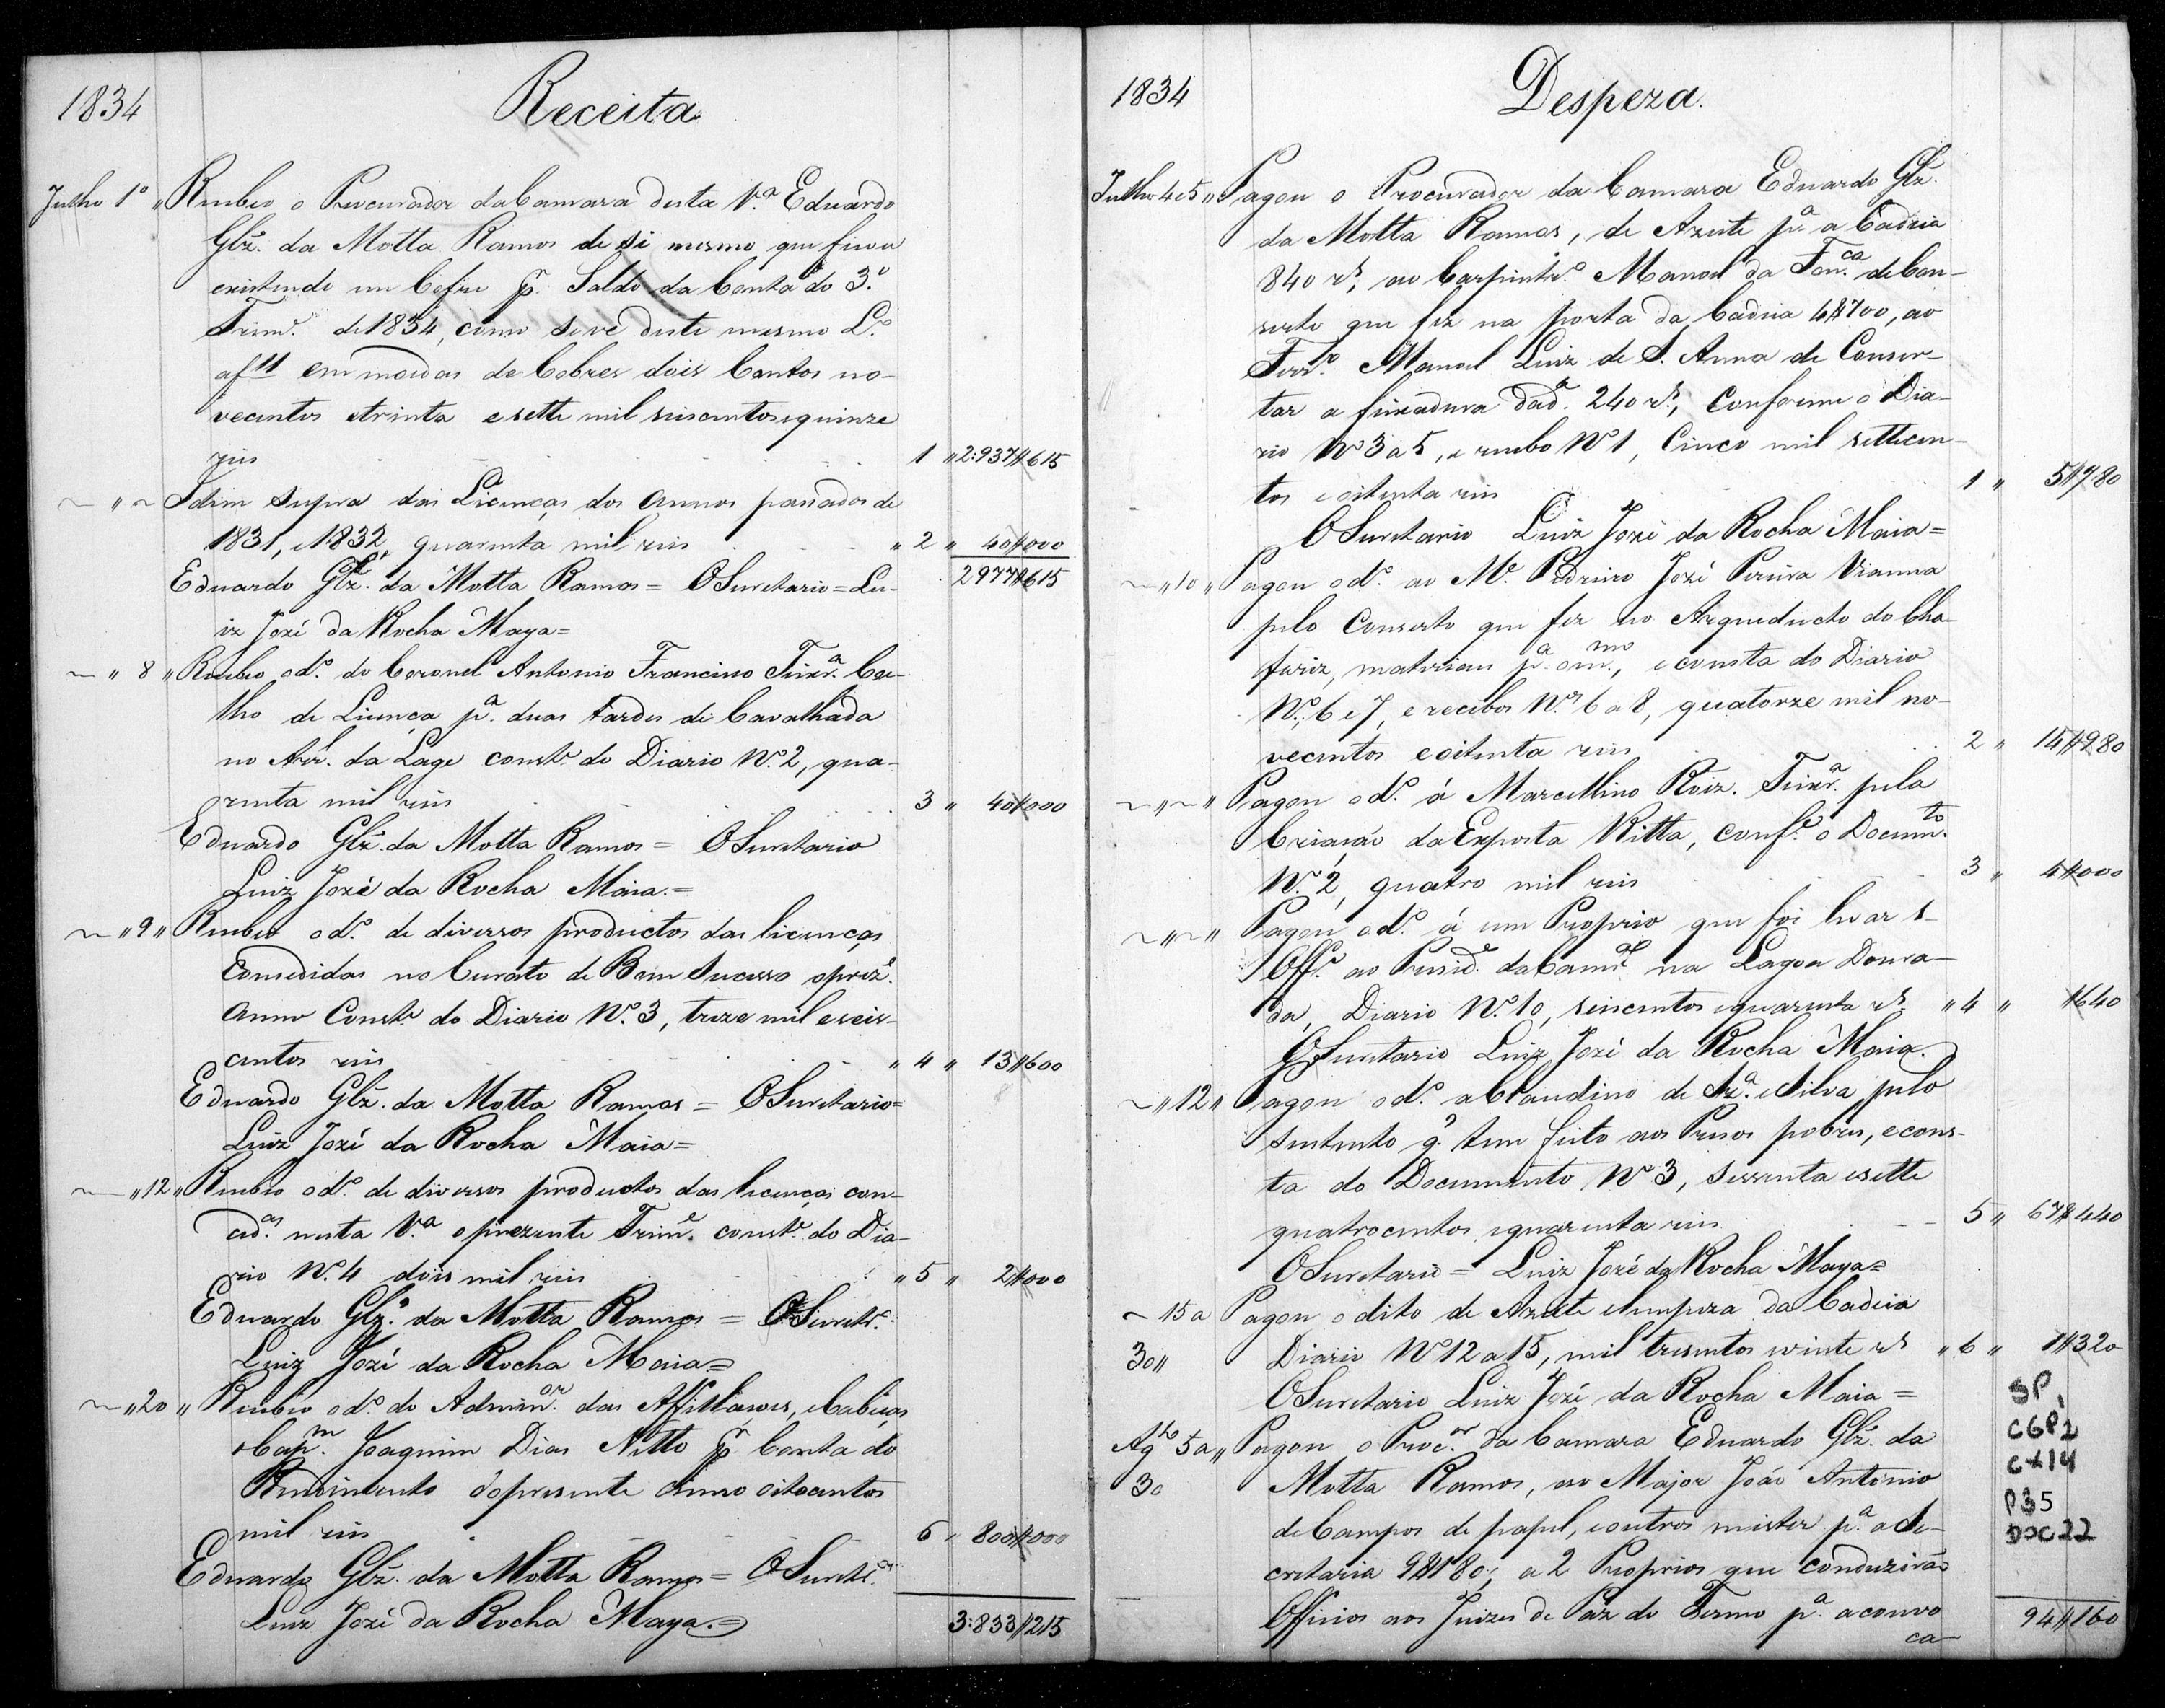 1834
Receita
Julho 1º " Recebeo o Procurador da Camara desta V.ª Eduardo
Glz. da Motta Ramos de si mesmo que ficou
existende em Cofre p. Saldo da Conta do 3.º
Trim.e de 1834, como se vê deste mesmo L.º
a f 11 em moedas de Cobres dois Contos no-
vecentos etrinta e sette mil seiscentos equinze
reis 1 " 2:937#615
~ " ~ Idem supra das Licenças dos annos passados de
1831, e 1832, quarenta mil reis " 2 " 40#000
Eduardo Glz. da Motta Ramos = O Secretario = Lu- 2977#615
iz Jozé da Rocha Maya =
~ " 8 " Recebeo o d.º do Coronel Antonio Francisco Teixr.ª Coe-
lho de Licença p.ª duas tardes de Cavalhada
no Arr.l da Lage const.e do Diario N.º 2, qua-
renta mil reis 3 " 40#000
Eduardo Glz. da Motta Ramos = O Secretario
Luiz Jozé da Rocha Maia. =
~ " 9 " Recebeo o d.º de diversos productos das licenças
Concedidas no Curato de Bom Sucesso o prez.e
anno Const.e do Diario N.º 3, treze mil eseis-
centos reis " 4 " 13#600
Eduardo Glz. da Motta Ramos = O Secretario =
Luiz Jozé da Rocha Maia =
~ " 12 " Recebeo o d.º de diversos productos das licenças con-
ced.as nesta V.ª o prezente Trim.e const.e do Dia-
rio N.º 4 dois mil reis " 5 " 2#000
Eduardo Glz. da Motta Ramos = O Secret.º
Luiz Jozé da Rocha Maia =
~ " 20 " Recebeo o d.º do Admin.or das Affillaçoes, eCabeças
o Cap.m Joaquim Dias Netto p.r Conta do
Rendimento do presente anno oitocentos
mil reis 6 " 800#000
Eduardo Glz. da Motta Ramos = O Secret.º
Luiz Jozé da Rocha Maya. = 3:833#215
1834
Despeza.
Julho 4 e 5 " Pagou o Procurador da Camara Eduardo Glz.
da Motta Ramos, de Azeite p.ª a Cadeia
840 r.s, ao Carpintr.º Manoel da Fon.ca de Con-
serto que fez na porta da Cadeia 4#700, ao
Ferr.º Manoel Luiz de S. Anna de Conser-
tar a fixadura da d.ª 240 r.s, Conforme o Dia-
rio Nº 3 a 5, e recibo Nº 1, Cinco mil settecen-
tos eoitenta reis 1 " 5#780
O Secretario Luiz Jozé da Rocha Maia =
~ " 10 " Pagou o d.º ao M.e Pedreiro Jozé Pereira Vianna
pelo Conserto que fez no Arqueducto do Cha-
fariz, materiaes p.ª o m.mo, econsta do Diario
N.os 6 e 7, e recibos N.os 6 a 8, quatorze mil no-
vecentos eoitenta reis 2 " 14#980
~ " ~ " Pagou o d.º á Marcellino Roiz. Teixr.ª pela
Criação da Exposta Ritta, conf.e o Docum.to
N.º 2, quatro mil reis 3 " 4#000
~ " ~ " Pagou o d.º á um Proprio que foi levar 1
Off.º ao Presid.e da Camr.ª na Lagoa Doura-
da, Diario N.º 10, seiscentos equarenta r.s " 4 " #640
O Secretario Luiz Jozé da Rocha Maia.
~ " 12 " Pagou o d.º a Claudino de Sz.ª e Silva pelo
sustento q. tem feito aos Prezos pobres, econs-
ta do Documento Nº 3, sessenta esette
quatrocentos equarenta reis 5 " 67#440
O Secretario = Luiz Jozé da Rocha Maya =
~ 15 a Pagou o dito de Azeite elimpeza da Cadeia
30 " Diario Nº 12 a 15, mil tresentos evinte r.s " 6 " 1#320
O Secretario Luiz Jozé da Rocha Maia =
Ag.to 5 a " Pagou o Proc.or da Camara Eduardo Glz. da
30 Motta Ramos, ao Major João Antonio
de Campos de papel, eoutros mister p.ª a Se-
cretaria 9#180, a 2 Proprios que conduzirão
Officios aos Juizes de Paz do Termo p.ª a convo
ca- 94#160
SP,
CGP2
CX14
P35
DOC22